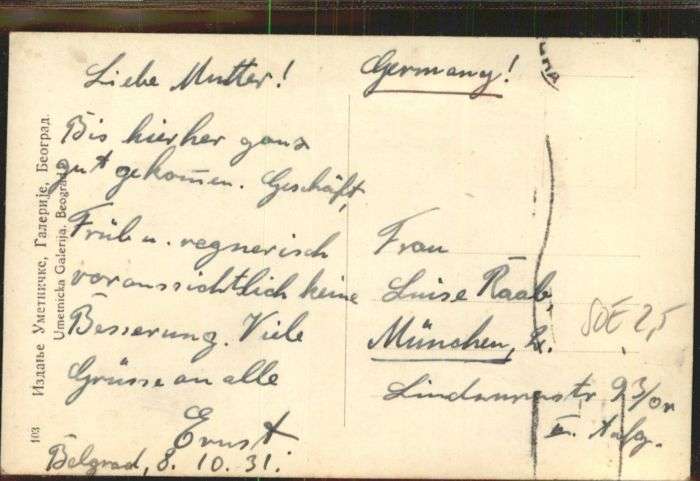 Liebe Mutter!
Bis hierher ganz
gut gekommen. Geschäft,
Früh u. regnerisch
voraussichtlich keine
Besserung. Viele
Grüsse an alle
Ernst
Belgrad, 8. 10. 31.
Germany!
Frau
Luise Raab,
München, 2.
93/or
II. Aufg.
SOE 2,5
103 Издање Уметничке, Галерије, Београд.
Umetnicka Galerija, Beograd